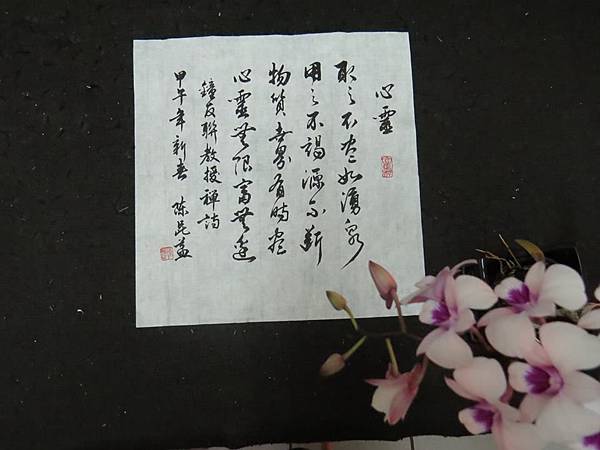 心靈
取之不盡如湧泉
用之不竭源不斷
物質世界有時盡
心靈無限富無邊
鐘友聯教授禪詩
甲午年新春 陳昆益